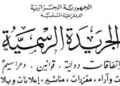 الجمهورية الجزائرية
الديمقراطية الشعبية
الجريدة الرسمية
اتفاقات دولية، قوانين، ومراسيم
وآراء، مقررات، مناشير، إعلانات وبلاغات